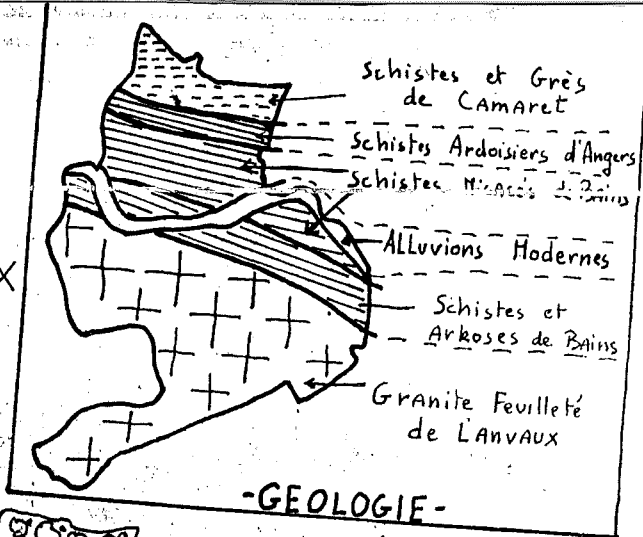 Schistes et Grès
de Camaret
Schistes Ardoisiers d'Angers
Schistes Micacés de Bains
Alluvions Modernes
Schistes et
Arkoses de Bains
Granite Feuilleté
de Lanvaux
-GEOLOGIE-